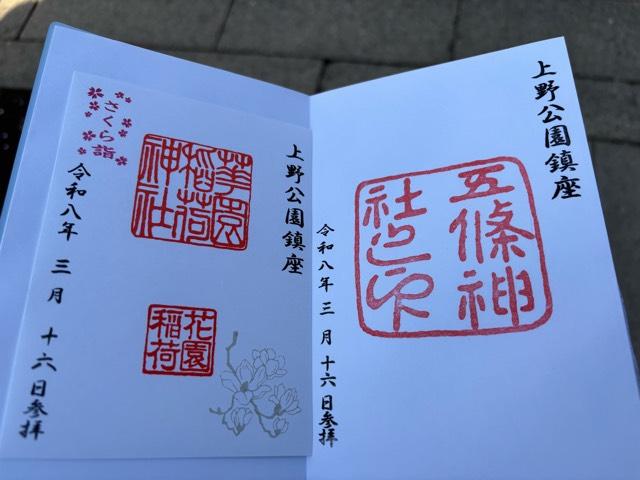 上野公園鎮座
五條神
社之印
令和八年 三月 十六日参拝
さくら詣
上野公園鎮座
華園
稲荷
神社
花園
稲荷
令和八年 三月 十六日参拝